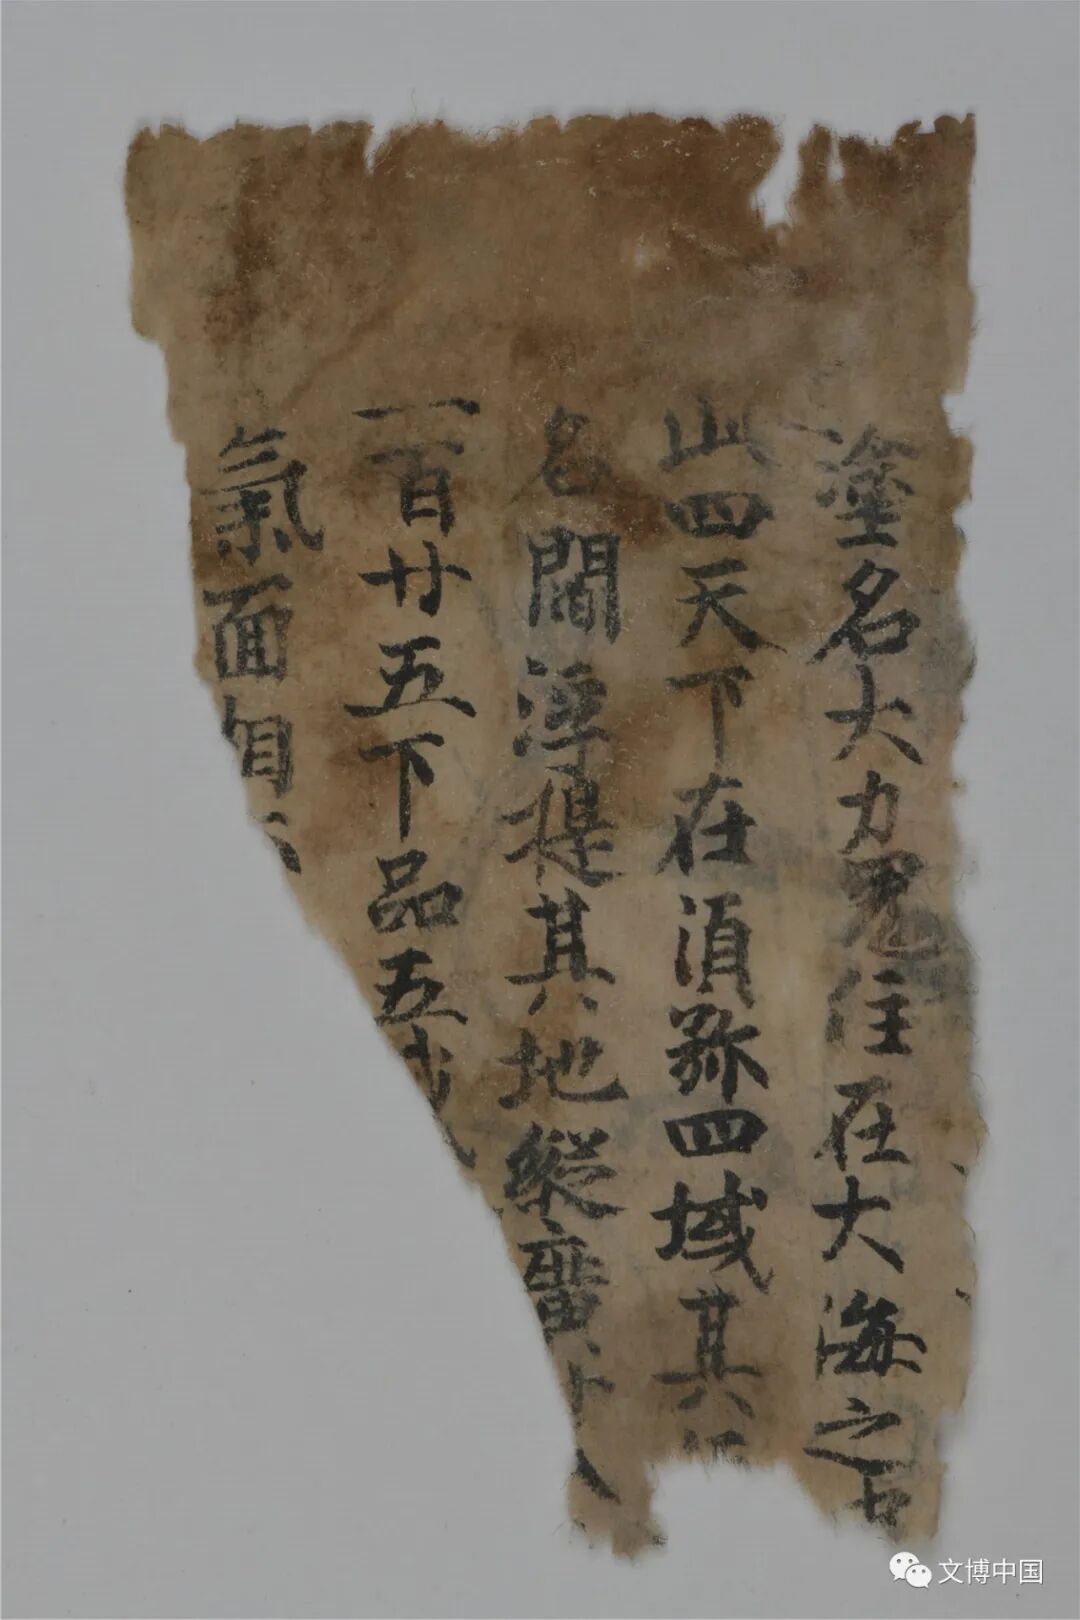 塗名大力鬼住在大海之
山四天下在須弥四域其
名閻浮提其地縱廣廿八
一百廿五下品五
氣面
文博中国